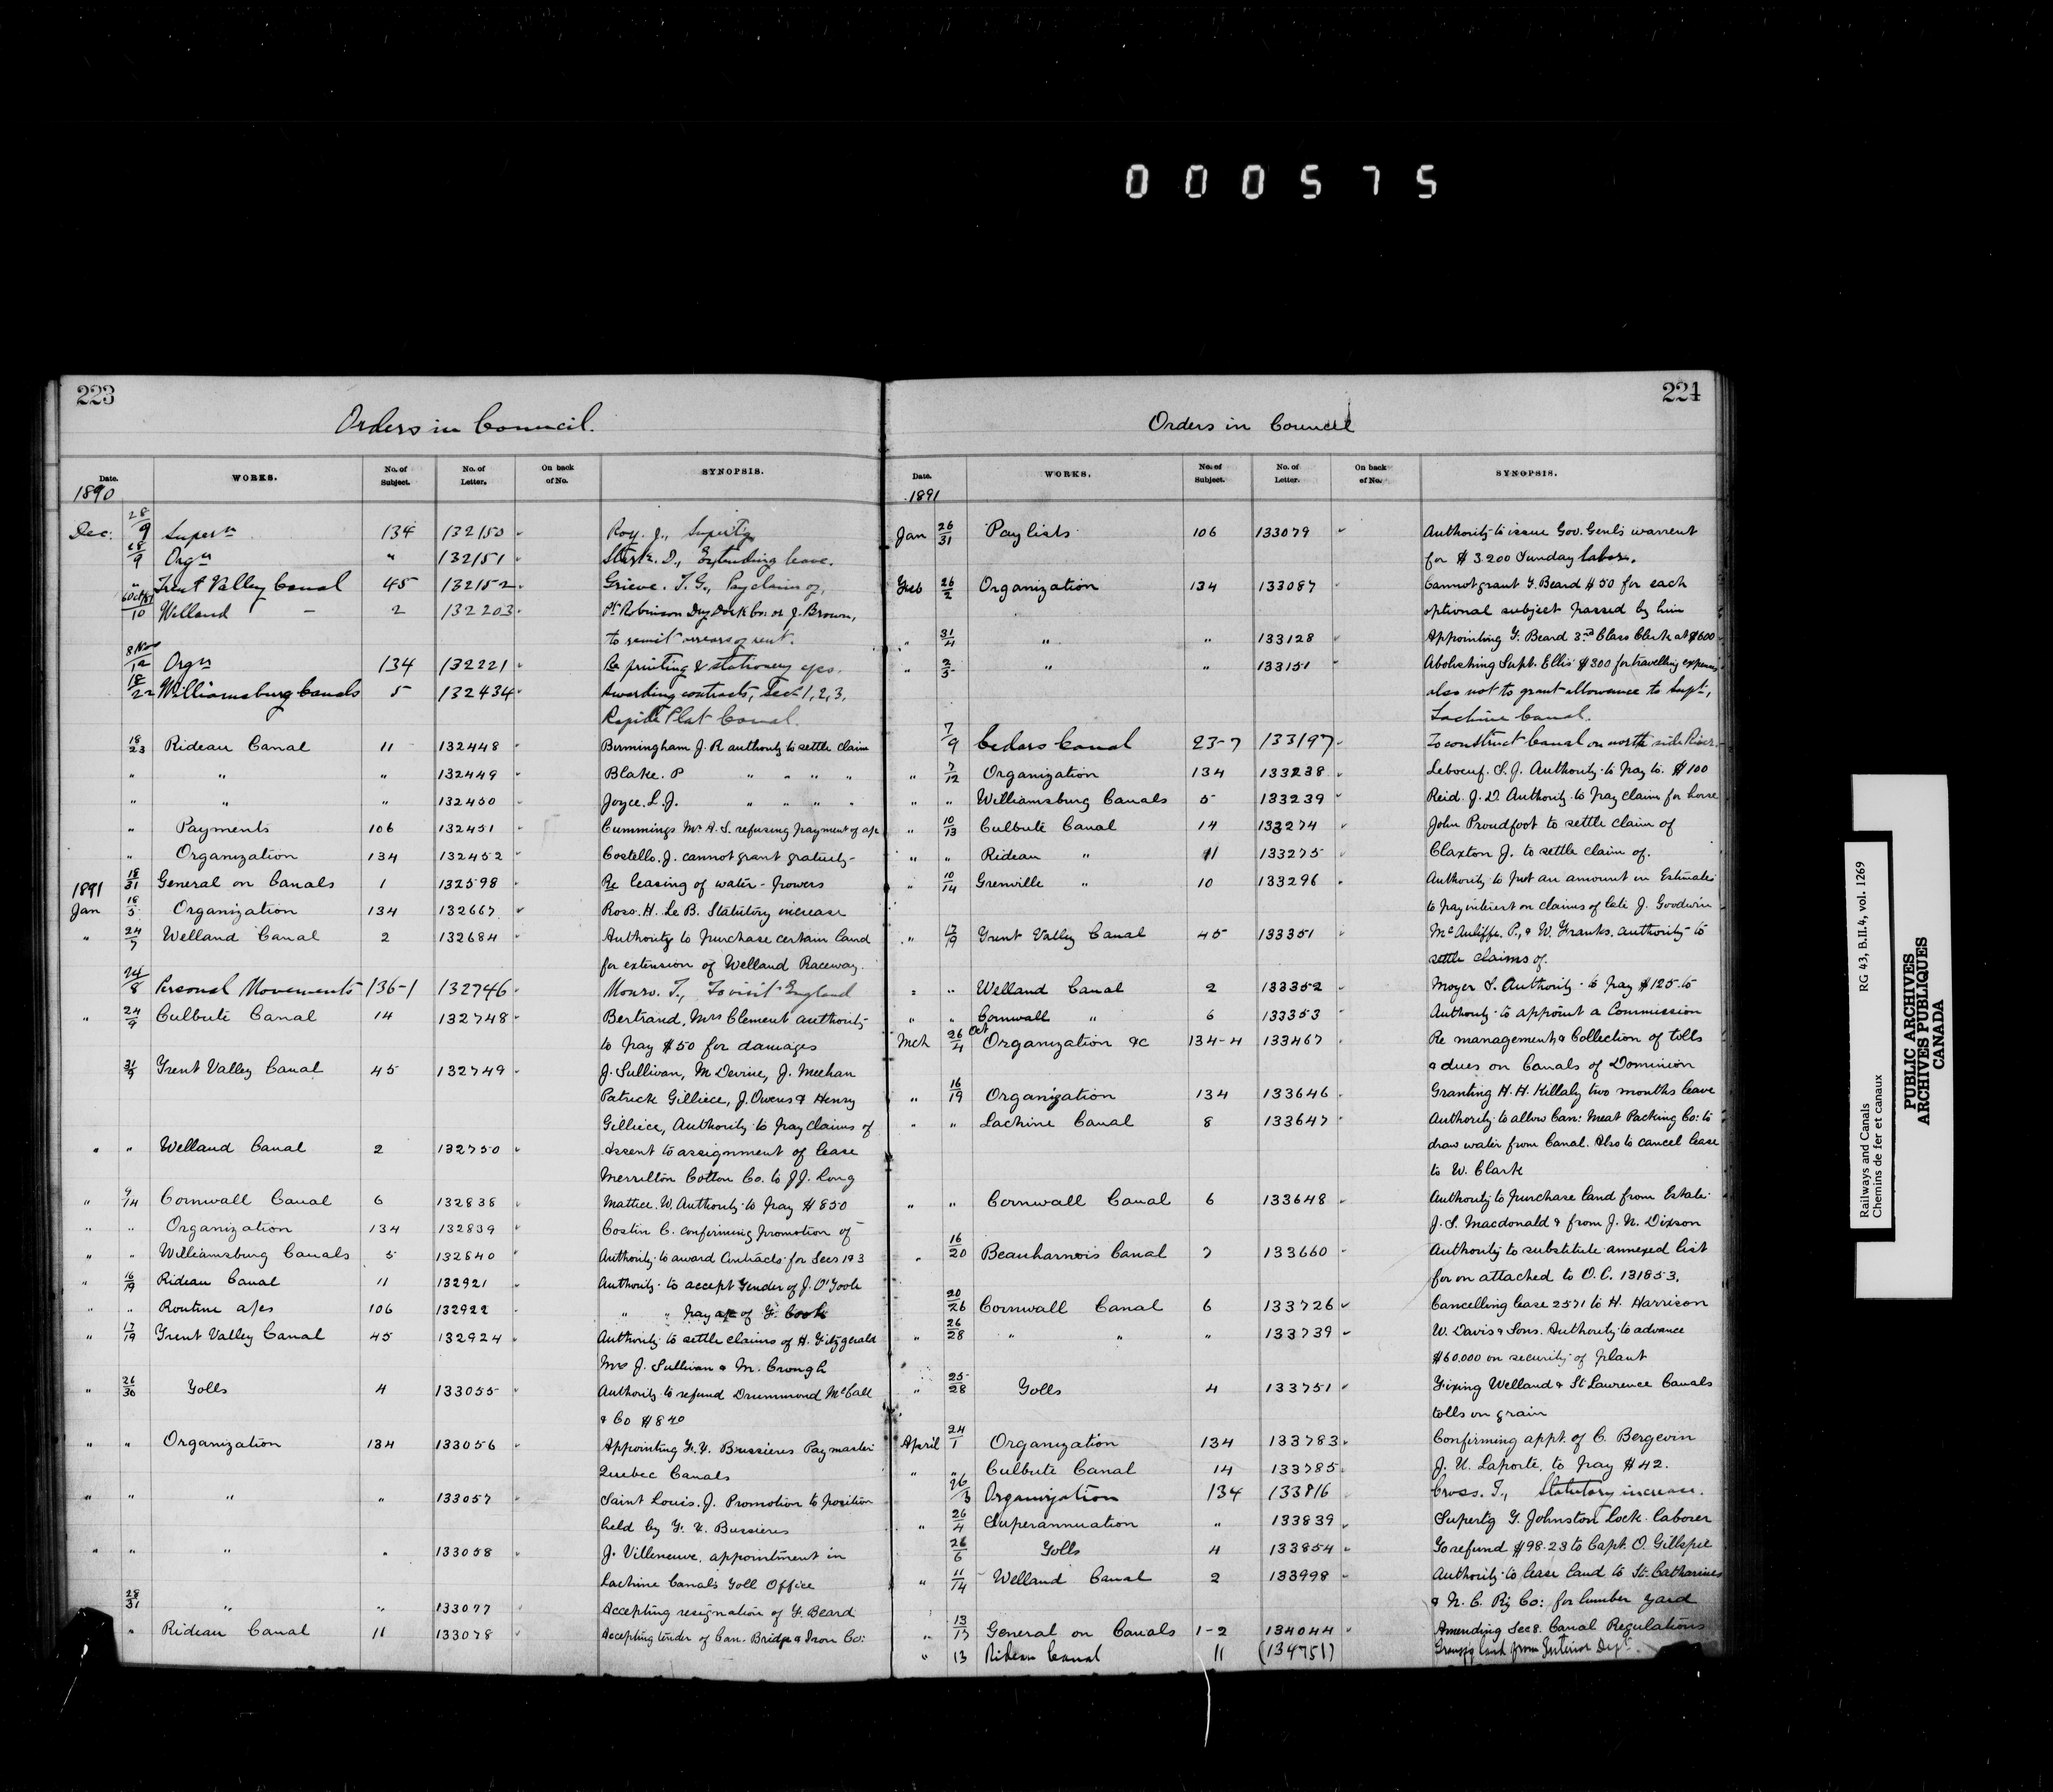 000575
223
Orders in Council.
Date. WORKS. No. of Subject. No. of Letter. On back of No. SYNOPSIS.
1890
Dec. 28/9 Supern 134 132150 Roy. J., Superty
28/9 Orgn " 132151 Stark. D., Extending leave.
" Trent Valley Canal 45 132152 Grieve. T. G., Pay claim of,
10 Welland — 2 132203 Pt. Robinson Dry Dock Co: or J. Brown,
to remit arrears of rent.
8 Nov/12 Orgn 134 132221 Re printing & stationery a/cs.
18/22 Williamsburg Canals 5 132434 Awarding contracts, Secs 1, 2, 3,
Rapide Plat Canal.
18/23 Rideau Canal 11 132448 Birmingham J. R authority to settle claim
" " " 132449 Blake. P " " " "
" " " 132450 Joyce. L. J. " " " "
" Payments 106 132451 Cummings Mr. A. S. refusing payment of a/c
" Organization 134 132452 Costello. J. cannot grant gratuity
1891 18/31 General on Canals 1 132598 Re leasing of water-powers
Jan 18/5 Organization 134 132667 Ross. H. Le B. Statutory increase
" 24/7 Welland Canal 2 132684 Authority to purchase certain land
for extension of Welland Raceway.
24/8 Personal Movements 136-1 132746 Monro. T., To visit England
" 24/9 Culbute Canal 14 132748 Bertrand, Mrs Clement authority
to pay $50 for damages
31/9 Trent Valley Canal 45 132749 J. Sullivan, M Devine, J. Meehan
Patrick Gilliece, J. Owens & Henry
Gilliece, Authority to pay claims of
" " Welland Canal 2 132750 Assent to assignment of lease
Merritton Cotton Co. to J. J. Long
" 9/14 Cornwall Canal 6 132838 Mattice. W. Authority to pay $850
" " Organization 134 132839 Costin C. confirming promotion of
" " Williamsburg Canals 5 132840 Authority to award Contracts for Secs 1 & 3
" 16/19 Rideau Canal 11 132921 Authority to accept Tender of J. O'Toole
" " Routine a/cs 106 132922 " " pay a/c of F. Cook
" 17/19 Trent Valley Canal 45 132924 Authority to settle claims of H. Fitzgerald
Mrs J. Sullivan & M. Crough
" 26/30 Tolls 4 133055 Authority to refund Drummond McCall
& Co $840
" " Organization 134 133056 Appointing F. X. Bussieres Paymaster
Quebec Canals
" " " " 133057 Saint Louis. J. Promotion to position
held by F. X. Bussieres
" " " " 133058 J. Villeneuve, appointment in
Lachine Canals Toll Office
28/31 " " 133077 Accepting resignation of F. Beard
" Rideau Canal 11 133078 Accepting tender of Can. Bridge & Iron Co:
224
Orders in Council
Date. WORKS. No. of Subject. No. of Letter. On back of No. SYNOPSIS.
1891
Jan 26/31 Paylists 106 133079 Authority to issue Gov. Genl's warrent
for $3.200 Sunday labor.
Feb 26/2 Organization 134 133087 Cannot grant F. Beard $50 for each
optional subject passed by him
" 31/4 " " 133128 Appointing F. Beard 3rd Class Clerk at $600
" 2/5 " " 133151 Abolishing Supt. Ellis' $300 for travelling expenses
also not to grant allowance to Supt,
Lachine Canal.
7/9 Cedars Canal 23-7 133197 To construct Canal on north side River.
" 7/12 Organization 134 133238 Leboeuf. S. J. Authority to pay to. $100
" " Williamsburg Canals 5 133239 Reid. J. D. Authority to pay claim for horse
" 10/13 Culbute Canal 14 133274 John Proudfoot to settle claim of
" " Rideau " 11 133275 Claxton J. to settle claim of.
" 10/14 Grenville " 10 133296 Authority to put an amount in Estimates
to pay interest on claims of late J. Goodwin
" 17/19 Trent Valley Canal 45 133351 McAuliffe. P., & W. Franks. authority to
settle claims of.
" " Welland Canal 2 133352 Moyer S. Authority to pay $125. to
" " Cornwall " 6 133353 Authority to appoint a Commission
Mch 26 Oct/4 Organization &c 134-4 133467 Re management & Collection of tolls
& dues on Canals of Dominion
" 16/19 Organization 134 133646 Granting H. H. Killaly two months leave
" " Lachine Canal 8 133647 Authority to allow Can: Meat Packing Co: to
draw water from Canal. Also to cancel lease
to W. Clark
" " Cornwall Canal 6 133648 Authority to purchase land from Estate
J. S. Macdonald & from J. N. Dixson
" 16/20 Beauharnois Canal 7 133660 Authority to substitute annexed list
for on attached to O. C. 131853.
20/26 Cornwall Canal 6 133726 Cancelling lease 2571 to H. Harrison
" 26/28 " " " 133739 W. Davis & Sons. Authority to advance
$60.000 on security of plant
" 25/28 Tolls 4 133751 Fixing Welland & St Lawrence Canals
tolls on grain
April 24/1 Organization 134 133783 Confirming appt. of C. Bergevin
" " Culbute Canal 14 133785 J. U. Laporte, to pay $42.
26/3 Organization 134 133816 Cross. T., Statutory increase.
" 26/4 Superannuation " 133839 Superty G. Johnston Lock laborer
26/6 Tolls 4 133854 To refund $98.23 to Capt. O. Gillspie
" 11/14 Welland Canal 2 133998 Authority to lease land to St. Catharines
& N. C. Ry Co: for lumber yard
" 13/17 General on Canals 1-2 134044 Amending Sec 8. Canal Regulations
" 13 Rideau Canal 11 (134751) land from Interior Dept.
Railways and Canals
Chemins de fer et canaux
RG 43, B.II.4, vol. 1269
PUBLIC ARCHIVES
ARCHIVES PUBLIQUES
CANADA